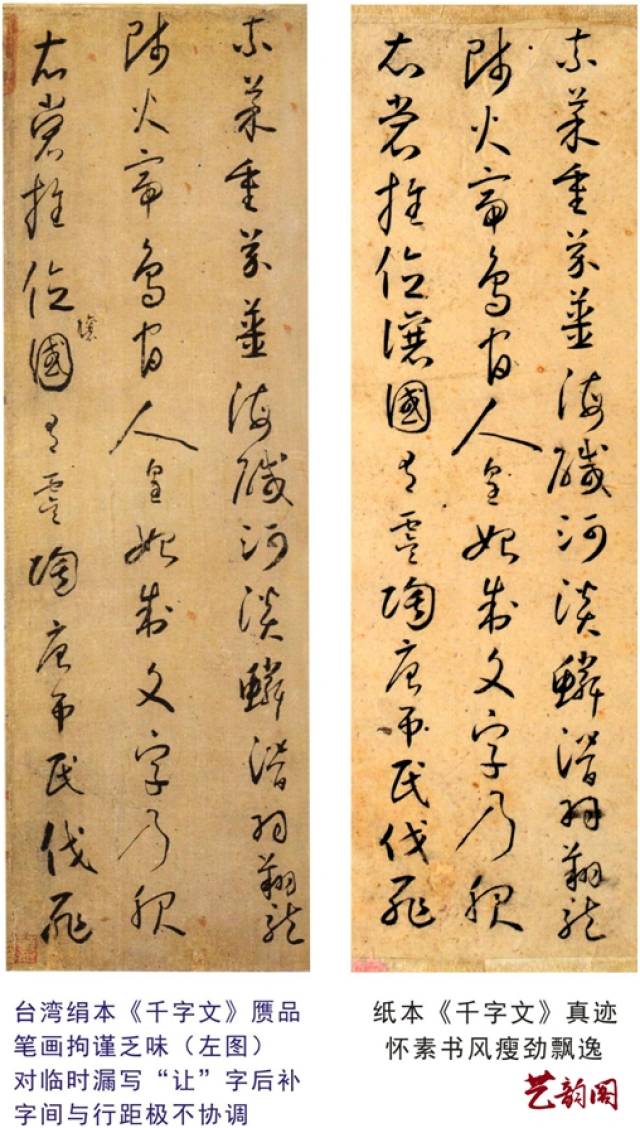 柰菜重芥薑海醎河淡鱗潛羽翔龍
師火帝鳥官人皇始制文字乃服
衣裳推位國有虞陶唐弔民伐罪
讓
柰菜重芥薑海醎河淡鱗潛羽翔龍
師火帝鳥官人皇始制文字乃服
衣裳推位讓國有虞陶唐弔民伐罪
台湾绢本《千字文》赝品
笔画拘谨乏味（左图）
对临时漏写“让”字后补
字间与行距极不协调
纸本《千字文》真迹
怀素书风瘦劲飘逸
艺韵阁